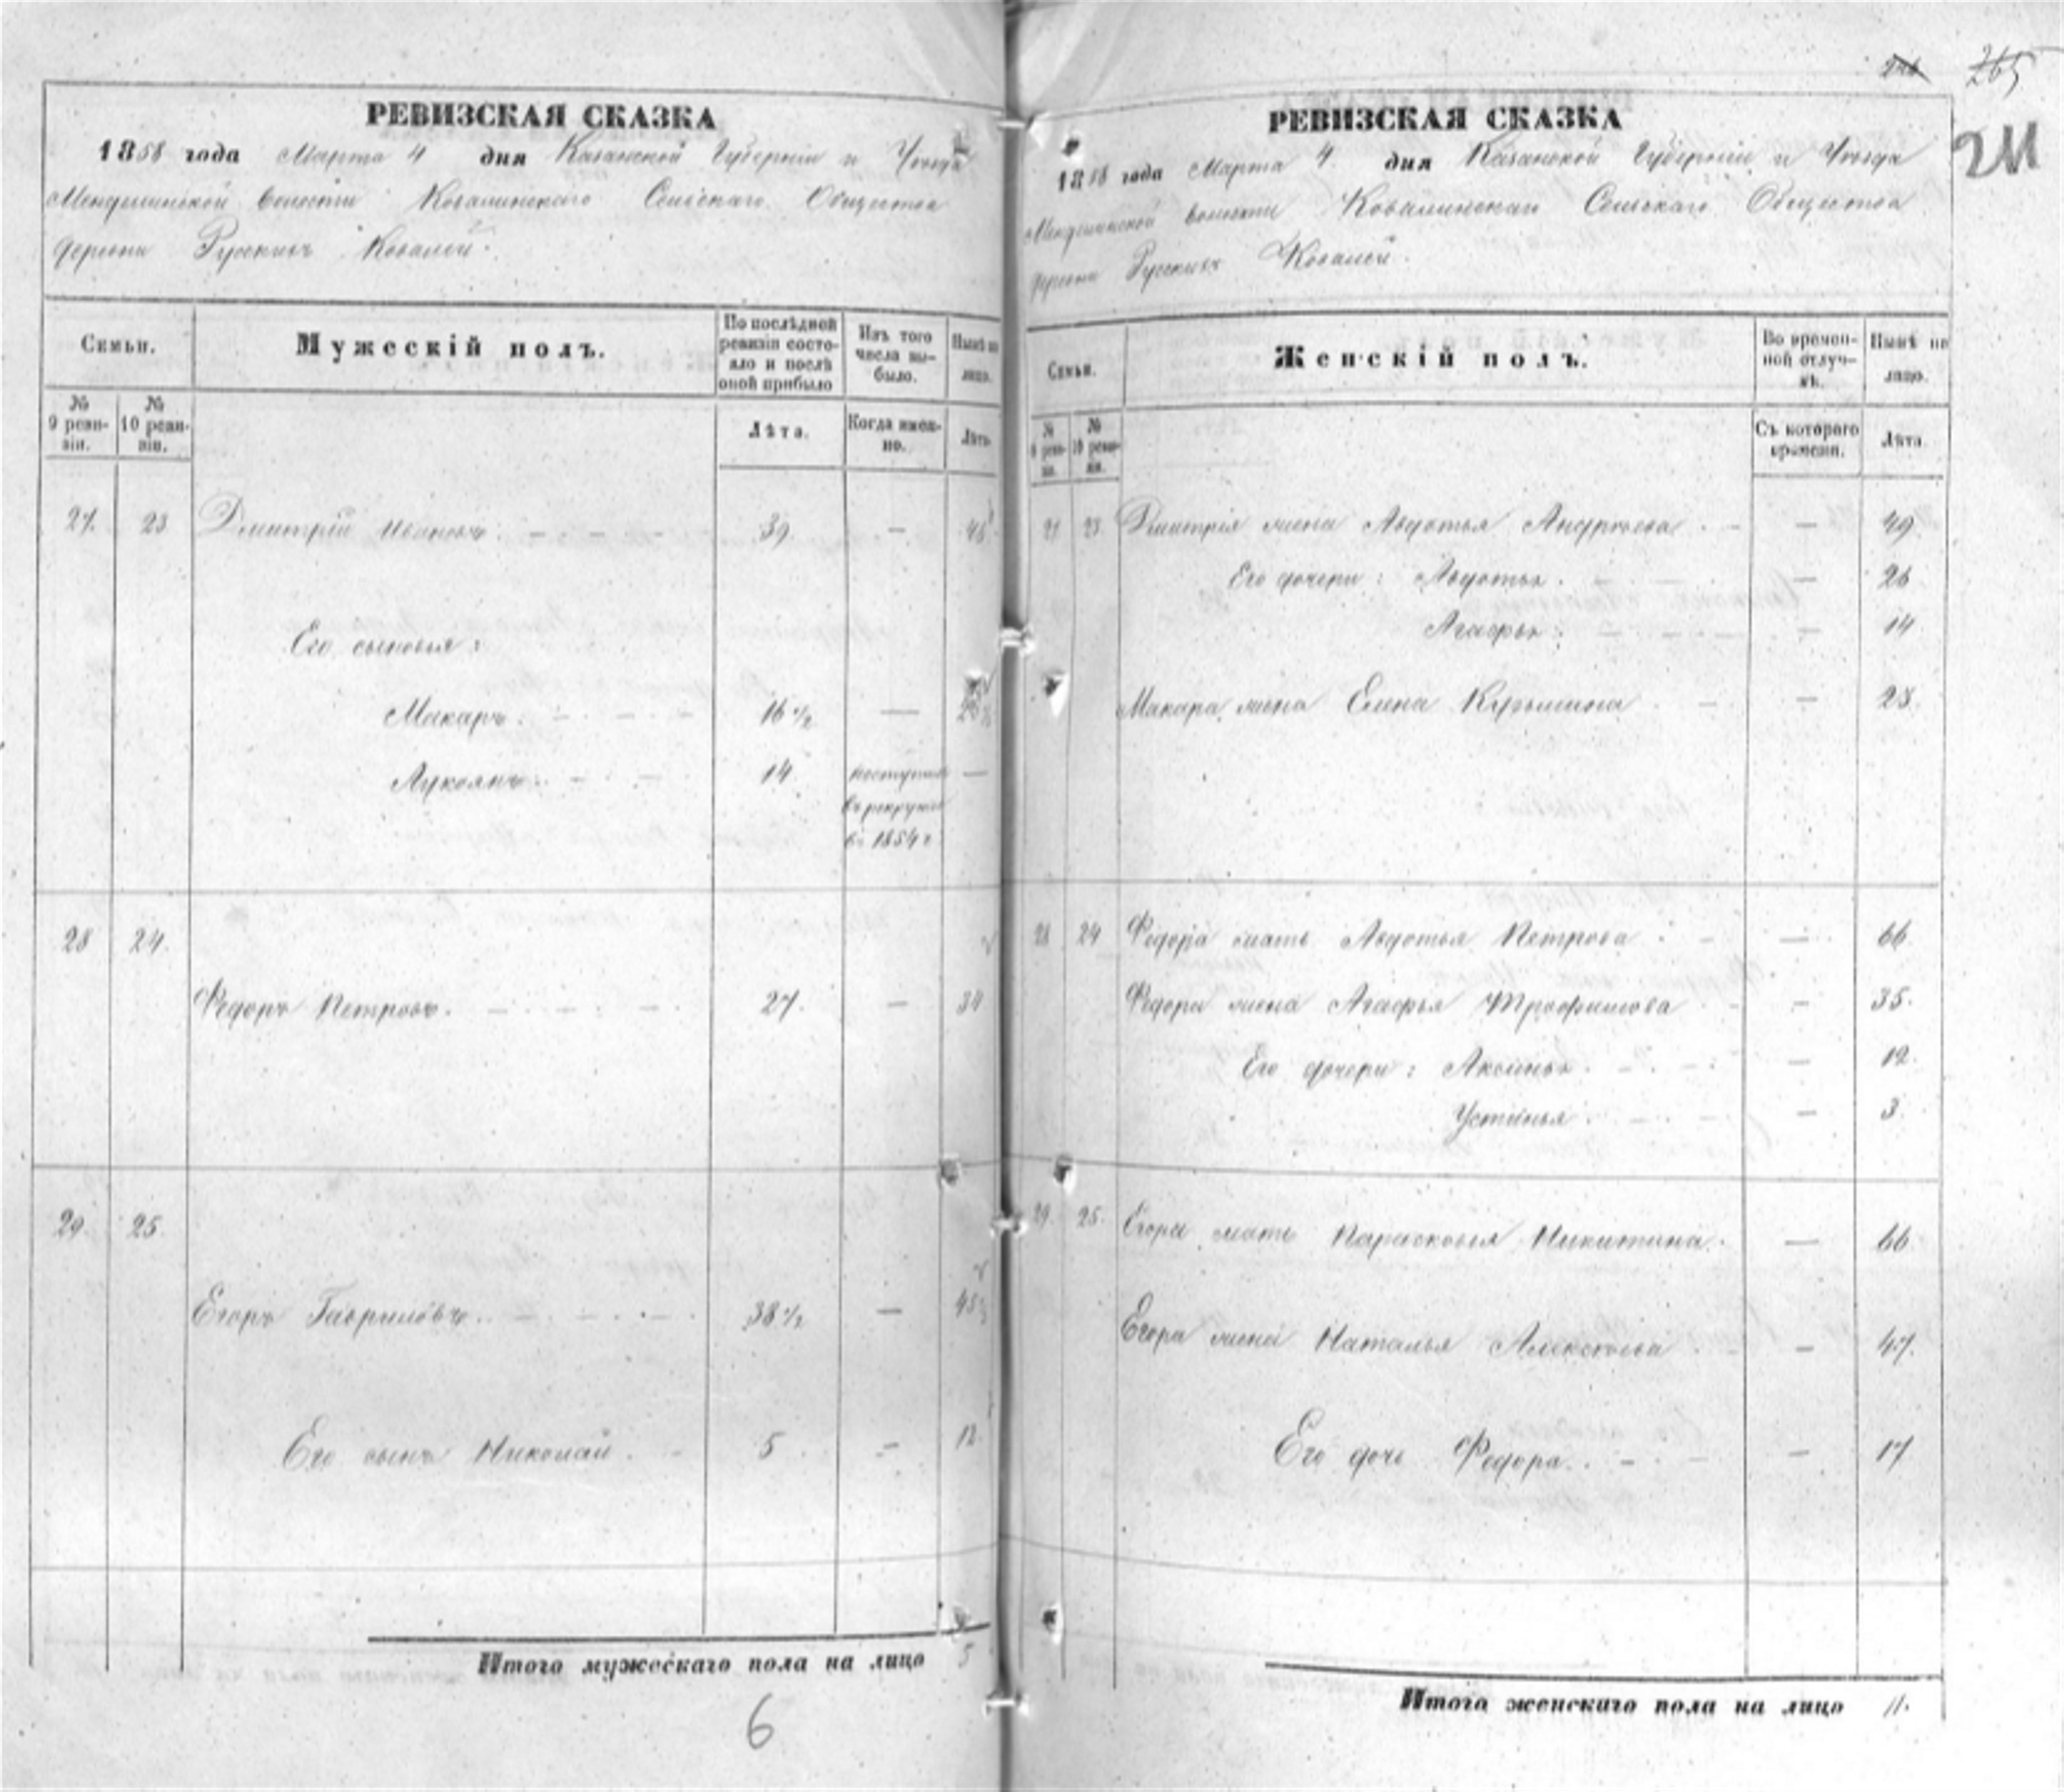 265
211
РЕВИЗСКАЯ СКАЗКА
1858 года Марта 4 дня Казанской Губернiи и Уѣзда
волости Ковалинскаго Сельскаго Общества
деревни Русскихъ Ковалей.
Семьи.
Мужескiй полъ.
По послѣдней ревизiи состояло и послѣ оной прибыло
Изъ того числа выбыло.
Нынѣ на лицо.
№ 9 ревизiи.
№ 10 ревизiи.
Лѣта.
Когда именно.
Лѣта
27. 23 Дмитрiй Ивановъ. 39. — 46
Его сыновья:
Макаръ. 16 ½ —
Лукоянъ. 14 поступилъ —
въ рекруты
въ 1854 г.
28 24.
Федоръ Петровъ. 27. — 34
29. 25.
Егоръ Гавриловъ. 38 ½ — 45 ½
Его сынъ Николай. 5 — 12.
Итого мужескаго пола на лицо 5
6
РЕВИЗСКАЯ СКАЗКА
1858 года Марта 4 дня Казанской Губернiи и Уѣзда
волости Ковалинскаго Сельскаго Общества
деревни Русскихъ Ковалей.
Семьи.
Женскiй полъ.
Во временной отлучкѣ.
Нынѣ на лицо.
№ 9 ревизiи.
№ 10 ревизiи.
Съ котораго времени.
Лѣта
27 23 Дмитрiя жена Авдотья Андреева — 49.
Его дочери: Авдотья. — 26
Агафья. — 14
Макара жена Елена Кузьмина — 28.
28 24 Федора мать Авдотья Петрова — 66.
Федора жена Агафья Трофимова — 35.
Его дочери: Аксинья. — 12.
Устинья. — 3.
29. 25. Егора мать Парасковья Никитина. — 66
Егора жена Наталья Алексѣева — 47.
Его дочь Федора. — 17
Итого женскаго пола на лицо 11.